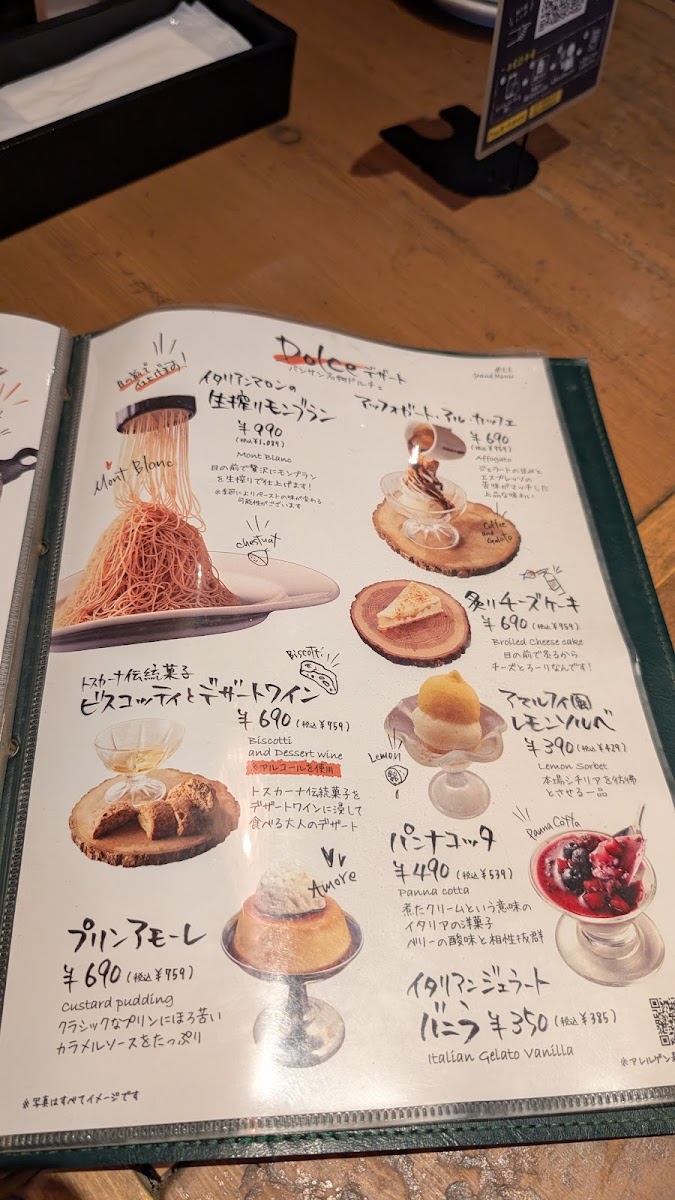 Dolce デザート
バンサン名物ドルチェ
Grand Menu
目の前で
イタリアンマロンの
生搾りモンブラン
¥990
(税込¥1,089)
Mont Blanc
目の前で贅沢にモンブラン
を生搾りで仕上げます!
※季節によりペーストの味が変わる
可能性がございます
Mont Blanc
chestnut
アッフォガート・アル・カッフェ
¥690
(税込¥759)
Affogato
ジェラートの甘みと
エスプレッソの
苦味がマッチした
上品な味わい
Coffee
and
Gelato
炙りチーズケーキ
¥690 (税込¥759)
Broiled Cheese cake
目の前で炙るから
チーズとろーりなんです!
トスカーナ伝統菓子
ビスコッティとデザートワイン
¥690 (税込¥759)
Biscotti
and Dessert wine
※アルコールを使用
トスカーナ伝統菓子を
デザートワインに浸して
食べる大人のデザート
Biscotti
アマルフィ風
レモンソルベ
¥390 (税込¥429)
Lemon Sorbet
本場シチリアを彷彿
とさせる一品
Lemon
パンナコッタ
¥490 (税込¥539)
Panna cotta
煮たクリームという意味の
イタリアの洋菓子
ベリーの酸味と相性抜群
Panna Cotta
プリンアモーレ
¥690 (税込¥759)
Custard pudding
クラシックなプリンにほろ苦い
カラメルソースをたっぷり
Amore
イタリアンジェラート
バニラ ¥350 (税込¥385)
Italian Gelato Vanilla
※アレルゲン
※写真はすべてイメージです